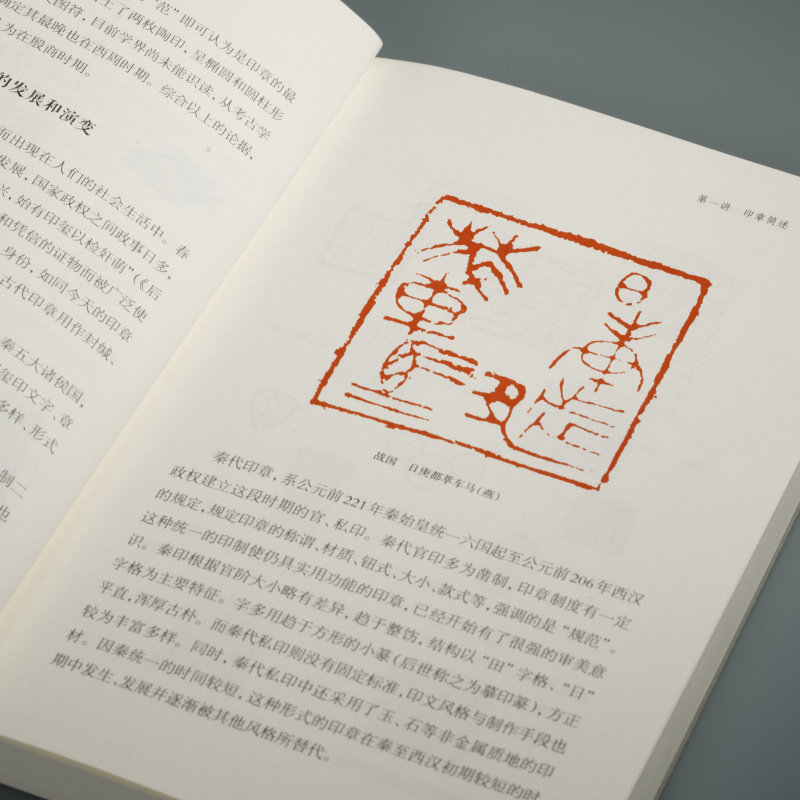 范”即可认为是印章的最
上了两枚陶印，呈椭圆和圆柱形
图符，目前学界尚未能识读，从考古学
确定其最晚也在西周时期。综合以上的论据，
为在殷商时期。
的发展和演变
而出现在人们的社会生活中。春
发展，国家政权之间政事日多，
兴，始有印玺以检奸萌”（《后
和凭信的证物而被广泛使
身份，如同今天的印章
古代印章用作封缄、
秦五大诸侯国，
玺印文字、章
多样、形式
制二
也
第一讲 印章简述
战国 日庚都萃车马（燕）
秦代印章，系公元前221年秦始皇统一六国起至公元前206年西汉
政权建立这段时期的官、私印。秦代官印多为凿制，印章制度有一定
的规定，规定印章的称谓、材质、钮式、大小、款式等，强调的是“规范”。
这种统一的印制使仍具实用功能的印章，已经开始有了很强的审美意
识。秦印根据官阶大小略有差异，趋于整饬，结构以“田”字格、“日”
字格为主要特征。字多用趋于方形的小篆（后世称之为摹印篆），方正
平直，浑厚古朴。而秦代私印则没有固定标准，印文风格与制作手段也
较为丰富多样。同时，秦代私印中还采用了玉、石等非金属质地的印
材。因秦统一的时间较短，这种形式的印章在秦至西汉初期较短的时
期中发生、发展并逐渐被其他风格所替代。